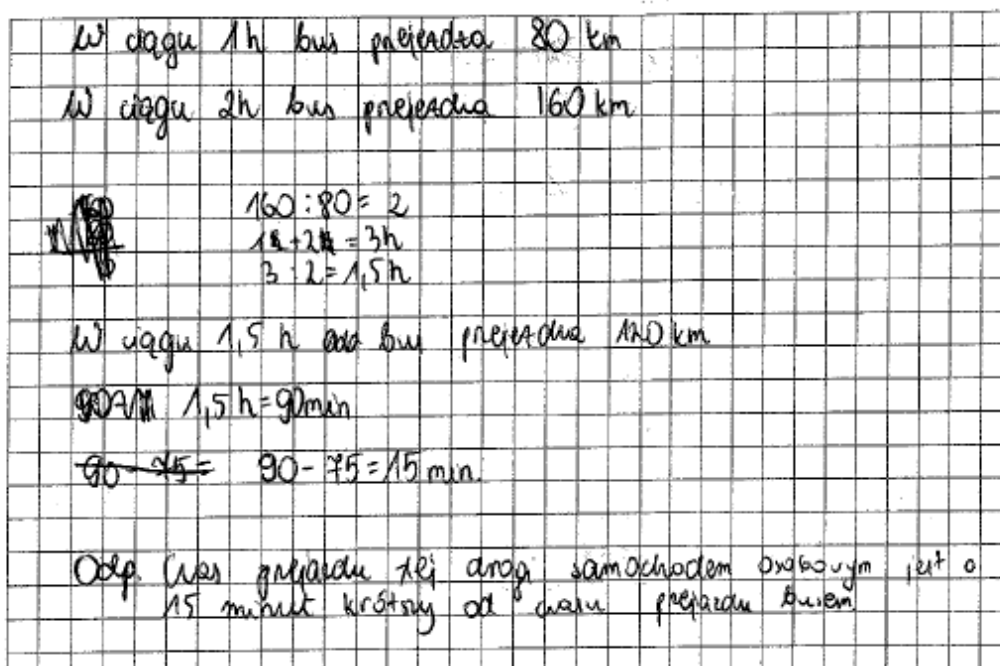 W ciągu 1h bus przejeżdża 80 km
W ciągu 2h bus przejeżdża 160 km
160 : 80 = 2
1 + 2 = 3h
3 : 2 = 1,5 h
W ciągu 1,5 h bus przejeżdża 120 km
1,5 h = 90min
90 - 75 = 90 - 75 = 15 min.
Odp. Czas przejazdu tej drogi samochodem osobowym jest o
15 minut krótszy od czasu przejazdu busem.